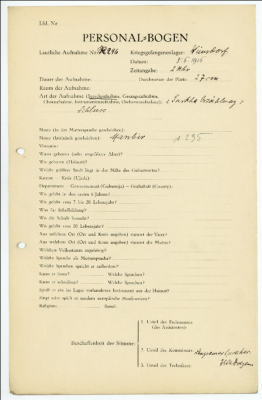 Lfd. Nr
PERSONAL-BOGEN
Lautliche Aufnahme Nr: 246 Kriegsgefangenenlager: Wünsdorf
Datum:
Zeitangabe: 2 Uhr
Dauer der Aufnahme: Durchmesser der Platte: 27 cm
Raum der Aufnahme:
Art der Aufnahme (Sprechaufnahme, Gesangsaufnahme,
Choraufnahme, Instrumentenaufnahme, Orchesteraufnahme):
Schluss
Name (in der Muttersprache geschrieben):
Name (lateinisch geschrieben):
Vorname:
Wann geboren (oder ungefähres Alter)?
Wo geboren (Heimat)?
Welche größere Stadt liegt in der Nähe des Geburtsortes?
Kanton – Kreis (Ujedz)
Departement – Gouvernement (Gubernija) – Grafschaft (County):
Wo gelebt in den ersten 6 Jahren?
Wo gelebt vom 7. bis 20. Lebensjahr?
Was für Schulbildung?
Wo die Schule besucht?
Wo gelebt vom 20. Lebensjahr?
Aus welchem Ort (Ort und Kreis angeben) stammt der Vater?
Aus welchem Ort (Ort und Kreis angeben) stammt die Mutter?
Welchem Volksstamm angehörig?
Welche Sprache als Muttersprache?
Welche Sprachen spricht er außerdem?
Kann er lesen? Welche Sprachen?
Kann er schreiben? Welche Sprachen?
Spielt er ein im Lager vorhandenes Instrument aus der Heimat?
Singt oder spielt er modern europäische Musikweisen?
Religion: Beruf:
Beschaffenheit der Stimme:
1. Urteil des Fachmannes
(des Assistenten)
2. Urteil des Kommissars:
3. Urteil des Technikers: